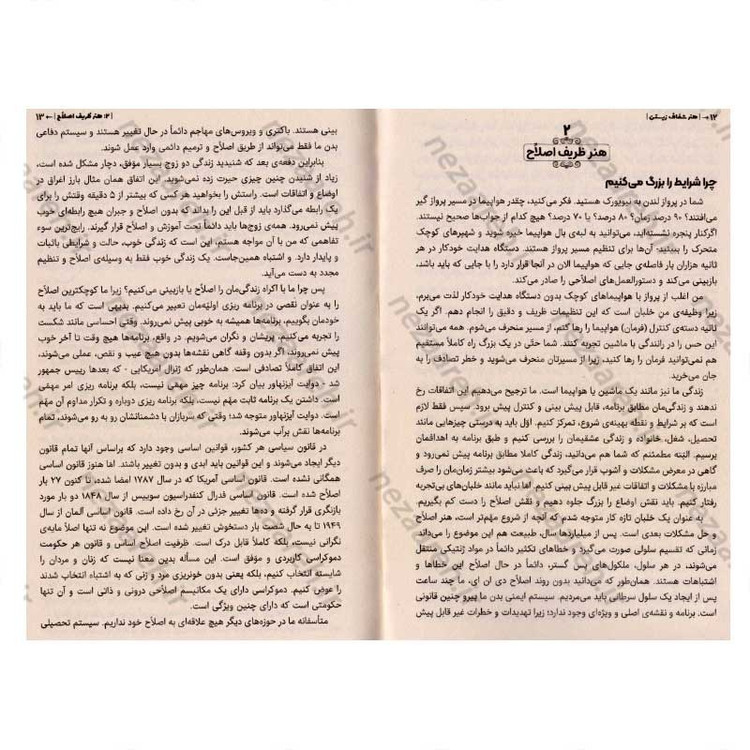 ۱۲ → | هنر شفاف زیستن |
۲
هنر ظریف اصلاح
چرا شرایط را بزرگ می‌کنیم
شما در پرواز لندن به نیویورک هستید. فکر می‌کنید، چقدر هواپیما در مسیر پرواز گیر
می‌افتند؟ ۹۰ درصد زمان؟ ۸۰ درصد؟ یا ۷۰ درصد؟ هیچ کدام از جواب‌ها صحیح نیستند.
اگر کنار پنجره نشسته‌اید، می‌توانید به لبه‌ی بال هواپیما خیره شوید و شهپرهای کوچک
متحرک را ببینید. آن‌ها برای تنظیم مسیر پرواز هستند. دستگاه هدایت خودکار در هر
ثانیه هزاران بار فاصله‌ی جایی که هواپیما الان در آنجا قرار دارد را با جایی که باید باشد،
بازبینی می‌کند و دستورالعمل‌های اصلاحی را صادر می‌کند.
من اغلب از پرواز با هواپیماهای کوچک بدون دستگاه هدایت خودکار لذت می‌برم،
زیرا وظیفه‌ی من خلبان است که این تنظیمات ظریف و دقیق را انجام دهم. اگر یک
ثانیه دسته‌ی کنترل (فرمان) هواپیما را رها کنم، از مسیر منحرف می‌شوم. همه می‌توانند
این حس را در رانندگی با ماشین تجربه کنند. شما حتی در یک بزرگ راه کاملاً مستقیم
هم نمی‌توانید فرمان را رها کنید، زیرا از مسیرتان منحرف می‌شوید و خطر تصادف را به
جان می‌خرید.
زندگی ما نیز مانند یک ماشین یا هواپیما است. ما ترجیح می‌دهیم این اتفاقات رخ
ندهند و زندگی‌مان مطابق برنامه، قابل پیش بینی و کنترل پیش برود. سپس فقط لازم
است که بر شرایط و نقطه بهینه‌ی شروع، تمرکز کنیم. اوّل باید به درستی چیزهایی مانند
تحصیل، شغل، خانواده و زندگی عشقیمان را بررسی کنیم و طبق برنامه به اهدافمان
برسیم. البّته مطمئنم که شما هم می‌دانید، زندگی کاملا مطابق برنامه پیش نمی‌رود و
گاهی در معرض مشکلات و آشوب قرار می‌گیرد که باعث می‌شود بیشتر زمان‌مان را صرف
مبارزه با مشکلات و اتفاقات غیر قابل پیش بینی کنیم. اما نباید مانند خلبان‌های بی‌تجربه
رفتار کنیم. باید نقش اوضاع را بزرگ جلوه دهیم و نقش اصلاح را دست کم بگیریم.
به عنوان یک خلبان تازه کار متوجه شدم که آنچه از شروع مهم‌تر است، هنر اصلاح
و حل مشکلات بعدی است. پس از میلیاردها سال، طبیعت هم این موضوع را می‌داند.
زمانی که تقسیم سلولی صورت می‌گیرد و خطاهای تکثیر دائماً در مواد ژنتیکی منتقل
می‌شوند، در هر سلول، ملکول‌های دی گستر، دائماً در حال اصلاح این خطاها و
اشتباهات هستند. همان‌طور که می‌دانید بدون روند اصلاح دی ان ای، ما چند ساعت
پس از ایجاد یک سلول سرطانی باید می‌مردیم. سیستم ایمنی بدن ما پیرو چنین قانونی
است. برنامه و نقشه‌ی اصلی و ویژه‌ای وجود ندارد؛ زیرا تهدیدات و خطرات غیر قابل پیش
| ۲: هنر ظریف اصلاح | ← ۱۳
بینی هستند. باکتری و ویروس‌های مهاجم دائماً در حال تغییر هستند و سیستم دفاعی
بدن ما فقط می‌تواند از طریق اصلاح و ترمیم دائمی وارد عمل شوند.
بنابراین دفعه‌ی بعد که شنیدید زندگی دو زوج بسیار مؤفق، دچار مشکل شده است،
زیاد از شنیدن چنین چیزی حیرت زده نمی‌شوید. این اتفاق همان مثال بارز اغراق در
اوضاع و اتفاقات است. راستش را بخواهید هر کسی که بیشتر از ۵ دقیقه وقتش را برای
یک رابطه می‌گذارد باید از قبل این را بداند که بدون اصلاح و جبران هیچ رابطه‌ای خوب
پیش نمی‌رود. همه‌ی زوج‌ها باید دائماً تحت آموزش و اصلاح قرار گیرند. رایج‌ترین سوء
تفاهمی که من با آن مواجه هستم، این است که زندگی خوب، حالت و شرایطی باثبات
و پایدار دارد. و اشتباه همین‌جاست. یک زندگی خوب فقط به وسیله‌ی اصلاح و تنظیم
مجدد به دست می‌آید.
پس چرا ما با اکراه زندگی‌مان را اصلاح یا بازبینی می‌کنیم؟ زیرا ما کوچکترین اصلاح
را به عنوان نقصی در برنامه ریزی اولیّه‌مان تعبیر می‌کنیم. بدیهی است که ما باید به
خودمان بگوییم، برنامه‌ها همیشه به خوبی پیش نمی‌روند. وقتی احساسی مانند شکست
را تجربه می‌کنیم، پریشان و نگران می‌شویم. در واقع، برنامه‌ها هیچ وقت تا آخر خوب
پیش نمی‌روند، اگر بدون وقفه گاهی نقشه‌ها بدون هیچ عیب و نقص، عملی می‌شوند،
این اتفاق کاملاً تصادفی است. همان‌طور که ژنرال آمریکایی - که بعدها رییس جمهور
شد - دوایت آیزنهاور بیان کرد: برنامه چیز مهمّی نیست، بلکه برنامه ریزی امر مهمّی
است. داشتن یک برنامه ثابت مهّم نیست، بلکه برنامه ریزی دوباره و تکرار مداوم آن مهّم
است. دوایت آیزنهاور متوجه شد؛ وقتی که سربازان با دشمنانشان رو به رو می‌شوند، تمام
برنامه‌ها نقش برآب می‌شوند.
در قانون سیاسی هر کشور، قوانین اساسی وجود دارد که براساس آنها تمام قانون
دیگر ایجاد می‌شوند و این قوانین باید ابدی و بدون تغییر باشند. اما هنوز قانون اساسی
همگانی نشده است. قانون اساسی آمریکا که در سال ۱۷۸۷ امضا شده، تا کنون ۲۷ بار
اصلاح شده است. قانون اساسی فدرال کنفدراسیون سوییس از سال ۱۸۴۸ دو بار مورد
بازنگری قرار گرفته و ده‌ها تغییر جزئی در آن رخ داده است. قانون اساسی آلمان از سال
۱۹۴۹ تا به حال شصت بار دستخوش تغییر شده است. این موضوع نه تنها اصلاً مایه‌ی
نگرانی نیست، بلکه کاملاً قابل درک است. ظرفیت اصلاح اساس و قانون هر حکومت
دموکراسی کاربردی و مؤفق است. این مسأله بدین معنا نیست که زنان و مردان را
شایسته انتخاب کنیم، بلکه یعنی بدون خونریزی مرد و زنی که به اشتباه انتخاب شدند
را عوض کنیم. دموکراسی دارای یک مکانیسم اصلاحی درونی و ذاتی است و آن تنها
حکومتی است که دارای چنین ویژگی است.
متأسفانه ما در حوزه‌های دیگر هیچ علاقه‌ای به اصلاح خود نداریم. سیستم تحصیلی